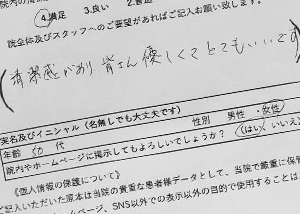 院内の清潔
④満足 3.良い 2.普通
院全体及びスタッフへのご要望があればご記入お願い致します。
清潔感があり 皆さん優しくてとてもいいです
実名及びイニシャル(名無しでも大丈夫です)
年齢 代 性別 男性・女性
院内やホームページに掲示してもよろしいでしょうか? (はい・いいえ)
《個人情報の保護について》
ご記入いただいた原本は当院の貴重な患者様データとして、当院で厳重に保管
ページ、SNS以外での表示以外の目的で使用することは